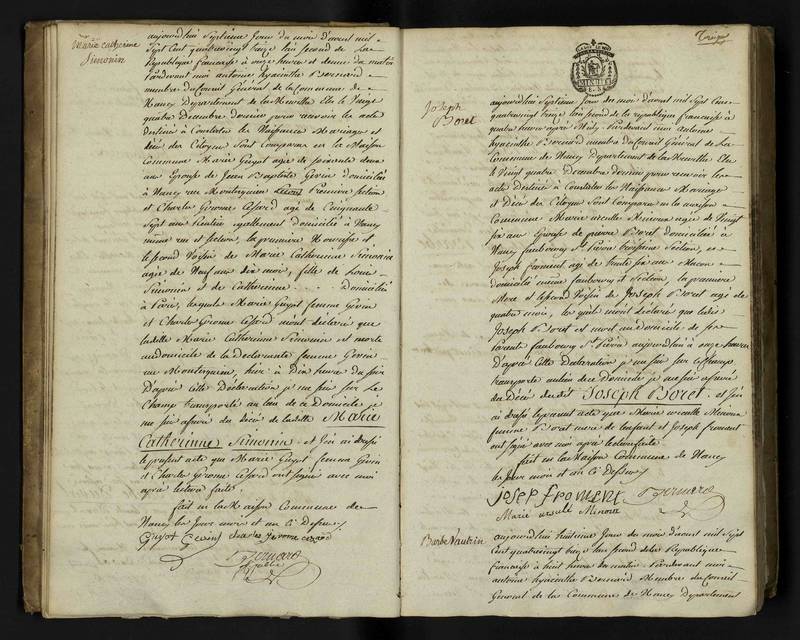 Marie Catherine
Simonin
aujourdhui Septieme Jour du mois d'avout mil
Sept Cent quatrevingt treize l'an second de la
Republique française à onze heures et demie du matin
Pardevant moi antoine hyacinthe Bernard
membre du Conseil Général de la Commune de
Nancy Departement de la Meurthe Elu le Vingt
quatre Decembre dernier pour recevoir les actes
destinés à Constater les Naissances Mariages et
deces des Citoyens Sont Comparus en la Maison
Commune Marie Guyot agée de soixante deux
ans Epouse de Jean Baptiste Gerin domicilié
à Nancy rue Montesquieu Premiere Section
et Charles Gerome agé de Cinquante
Sept ans Rentier egallement domicilié à Nancy
même rue et Section, la premiere Nourrisse et
le second Voisin de Marie Catherinne Simonin
agée de Neuf ans dix mois, fille de Louis
Simonin et de Catherinne . . . Domiciliés
à Paris, lesquels Marie Guyot femme Gerin
et Charles Gerome m'ont déclaré que
ladite Marie Catherinne Simonin est morte
au domicile de la Declarante femme Gerin
rue Montesquieu, hier à Dix heures du soir
D'après cette Déclaration je me suis sur Le
Champ transporté au lieu de ce Domicile je
me suis assuré du Décès de ladite Marie
Catherinne Simonin. et J'en ai dressé
le présent acte que Marie Guyot femme Gerin
et Charles Gerome ont signé avec moi
après lecture faite.
fait en la Maison Commune de
Nancy les Jour mois et an Ci Dessus
Guyot Gerin Charles Jerome
Bernard
Treize
Joseph
Boret
aujourdhui Septieme Jour du mois d'avout mil Sept Cent
quatrevingt treize l'an second de la république française à
quatre heures après Midy Pardevant moi Antoine
hyacinthe Bernard membre du Conseil Général de La
Commune de Nancy Departement de la Meurthe Elu
le Vingt quatre Decembre dernier pour recevoir les
actes Destinés à Constater les Naissances Mariages
et Décès des Citoyens Sont Comparus en la maison
Commune Marie ursulle Minoux agée de Vingt
six ans Epouse de pierre Boret domicilié à
Nancy faubourg St Pierre troisieme Section, et
Joseph froment agé de trente six ans Macon
domicilié même faubourg et Section, la premiere
Mere et le second Voisin de Joseph Boret agé de
quatre mois, lesquels m'ont déclaré que ledit
Joseph Boret est mort au domicile de ses
parents faubourg St Pierre aujourdhui à onze heures
D'après cette Declaration je me suis sur le champ
transporté au lieu de ce Domicile je me suis assuré
du Décès dudit Joseph Boret. et J'en
ai dressé le present acte que Marie ursulle Minoux
femme Boret mere de l'enfant et Joseph froment
ont signé avec moi après lecture faite
fait en la Maison Commune de Nancy
les Jour mois et an Ci Dessus
Josepf fromENt Bernard
Marie ursule Minoux
Barbe Vautrin
aujourdhui huitieme Jour du mois d'avout mil Sept
Cent quatrevingt treize l'an second de la Republique
française à huit heures du matin Pardevant moi
antoine hyacinthe Bernard Membre du Conseil
Général de la Commune de Nancy Departement